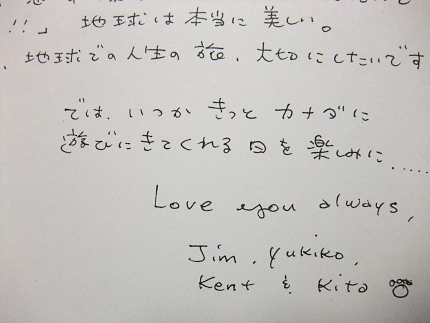 !!」 地球は本当に美しい。
地球での人生の旅、大切にしたいです
では、いつか きっと カナダに
遊びにきてくれる日を楽しみに.....
Love you always,
Jim, Yukiko,
Kent & Kito